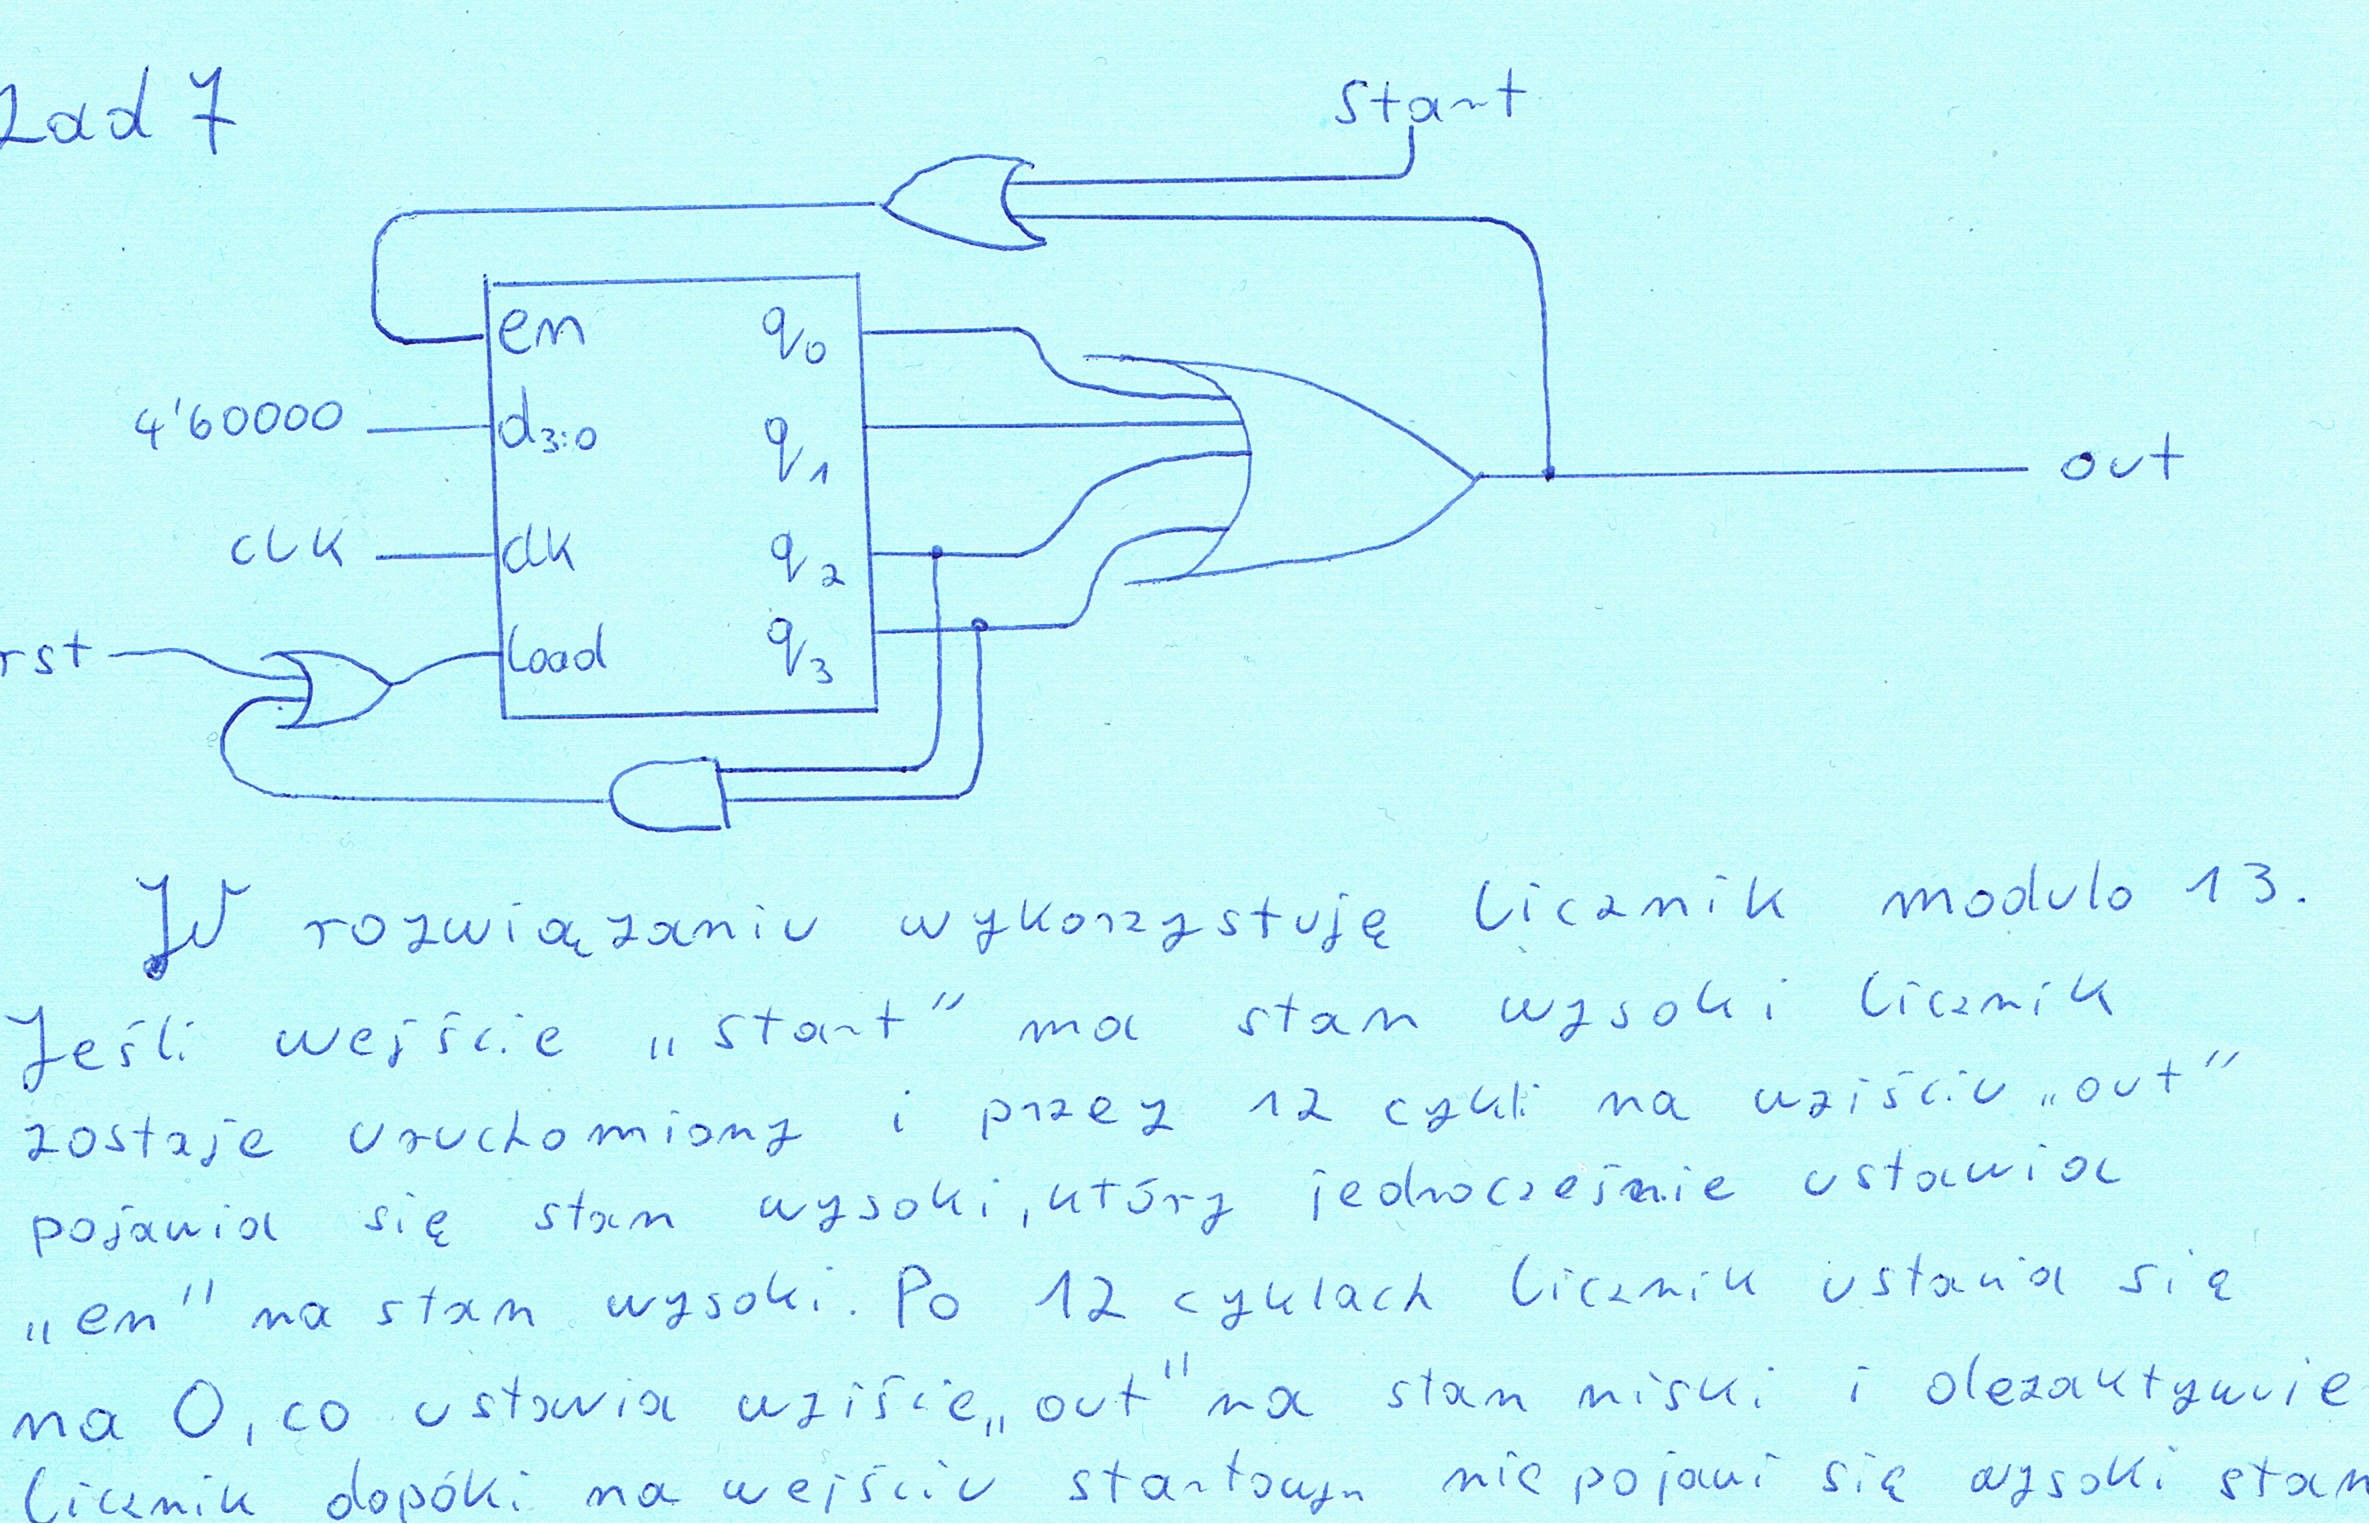 Zad 7
start
en
q0
4'b0000
d3:0
q1
out
CLK
clk
q2
rst
load
q3
W rozwiązaniu wykorzystuję licznik modulo 13.
Jeśli wejście „start” ma stan wysoki licznik
zostaje uruchomiony i przez 12 cykli na wyiściu „out”
pojawia się stan wysoki, który jednocześnie ustawia
„en” na stan wysoki. Po 12 cyklach licznik ustawia się
na 0, co ustawia wyiście „out” na stan niski i dezaktywuie
licznik dopóki na wejściu startowym nie pojawi się wysoki stan